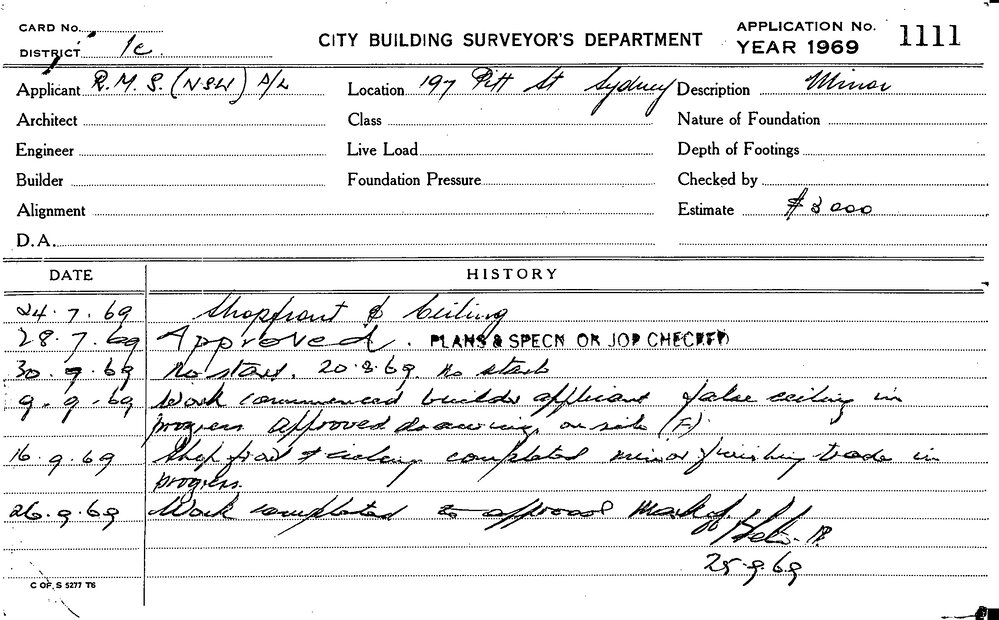 CARD No.
DISTRICT 1c
CITY BUILDING SURVEYOR'S DEPARTMENT
APPLICATION No. 1111
YEAR 1969
Applicant R.M.S. (NSW) P/L
Location 197 Pitt St Sydney
Description Minor
Architect
Class
Nature of Foundation
Engineer
Live Load
Depth of Footings
Builder
Foundation Pressure
Checked by
Alignment
Estimate $3000
D.A.
DATE HISTORY
24.7.69 Shopfront & Ceiling
28.7.69 Approved. PLANS & SPECN ON JOB CHECKED
30.9.69 No start. 20.8.69. No start
9.9.69 Work commenced builder applicant false ceiling in
progress approved drawing on site (F).
16.9.69 Shop front & ceiling completed minor finishing trade in
progress.
26.9.69 Work completed to approval Mark off
25.9.69
C OF S 5277 T6